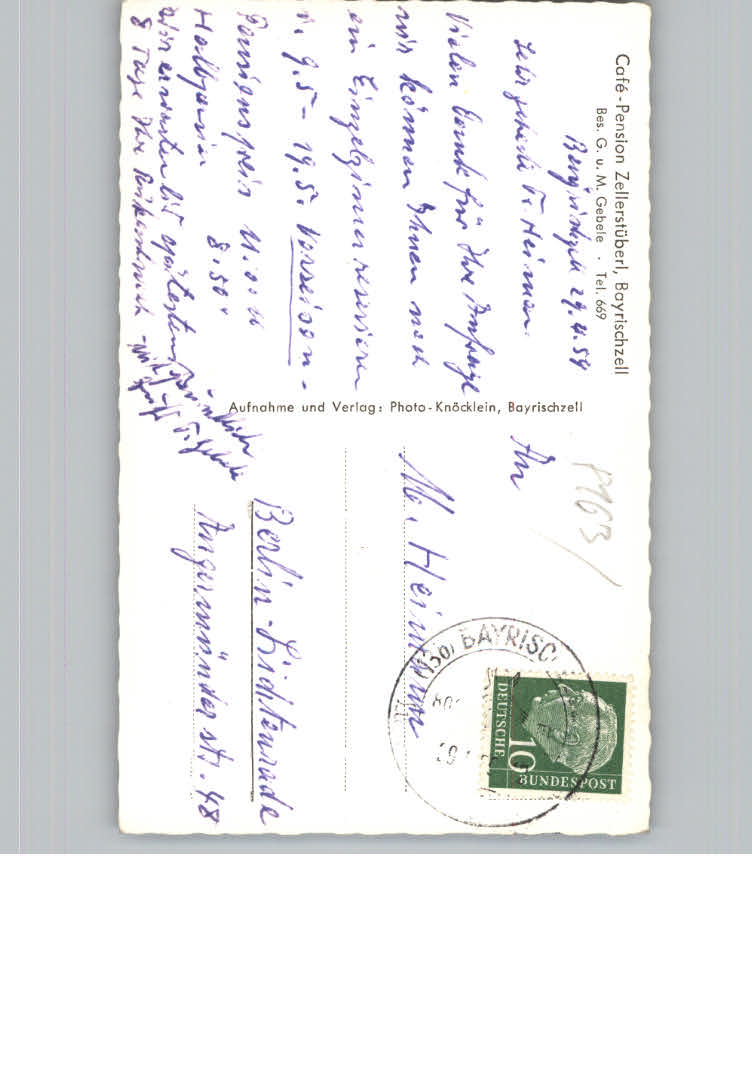 Café-Pension Zellerstüberl, Bayrischzell
Bes. G. u. M. Gebele · Tel. 669
29.4.59
Sehr geehrte Fr. Heiman.
Vielen Dank für Ihre Anfrage
wir können Ihnen noch
ein Einzelzimmer reservieren
v. 9.5 – 19.5. Vorseison-
Pensionspreis 11.00 M
Halbpension 8.50 "
Wir erwarten bis spätestens
8 Tage Ihre
Aufnahme und Verlag: Photo-Knöcklein, Bayrischzell
An
M. Heimann
Berlin-Lichtenrade
Angermünder str. 48
P163
(13b) BAYRISC
DEUTSCHE
10
BUNDESPOST